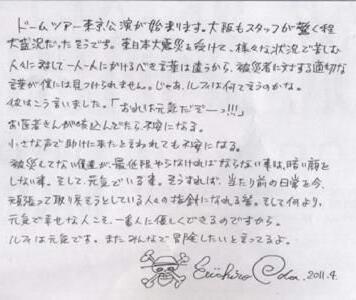 ドームツアー東京公演が始まります。大阪もスタッフが驚く程
大盛況だったそうです。東日本大震災を受けて、様々な状況で苦しむ
人々に対して一人一人にかけるべき言葉は違うから、被災者に対する適切な
言葉が僕には見つけられません。じゃあ、ルフィは何て言うのかな。
彼はこう言いました。「おれは元気だぞーっ!!!」
お医者さんが咳込んでたら不安になる。
小さな声で助けに来たと言われても不安になる。
被災してない僕達が、最低限やらなければならない事は、暗い顔を
しない事。そして、元気でいる事。そうすれば、当たり前の日常を今、
頑張って取り戻そうとしている人々の指針になれる筈。そして何より、
元気で幸せな人こそ、一番人に優しくできるのですから。
ルフィは元気です。またみんなで冒険したいと言ってるよ。
Eiichiro Oda 2011.4.